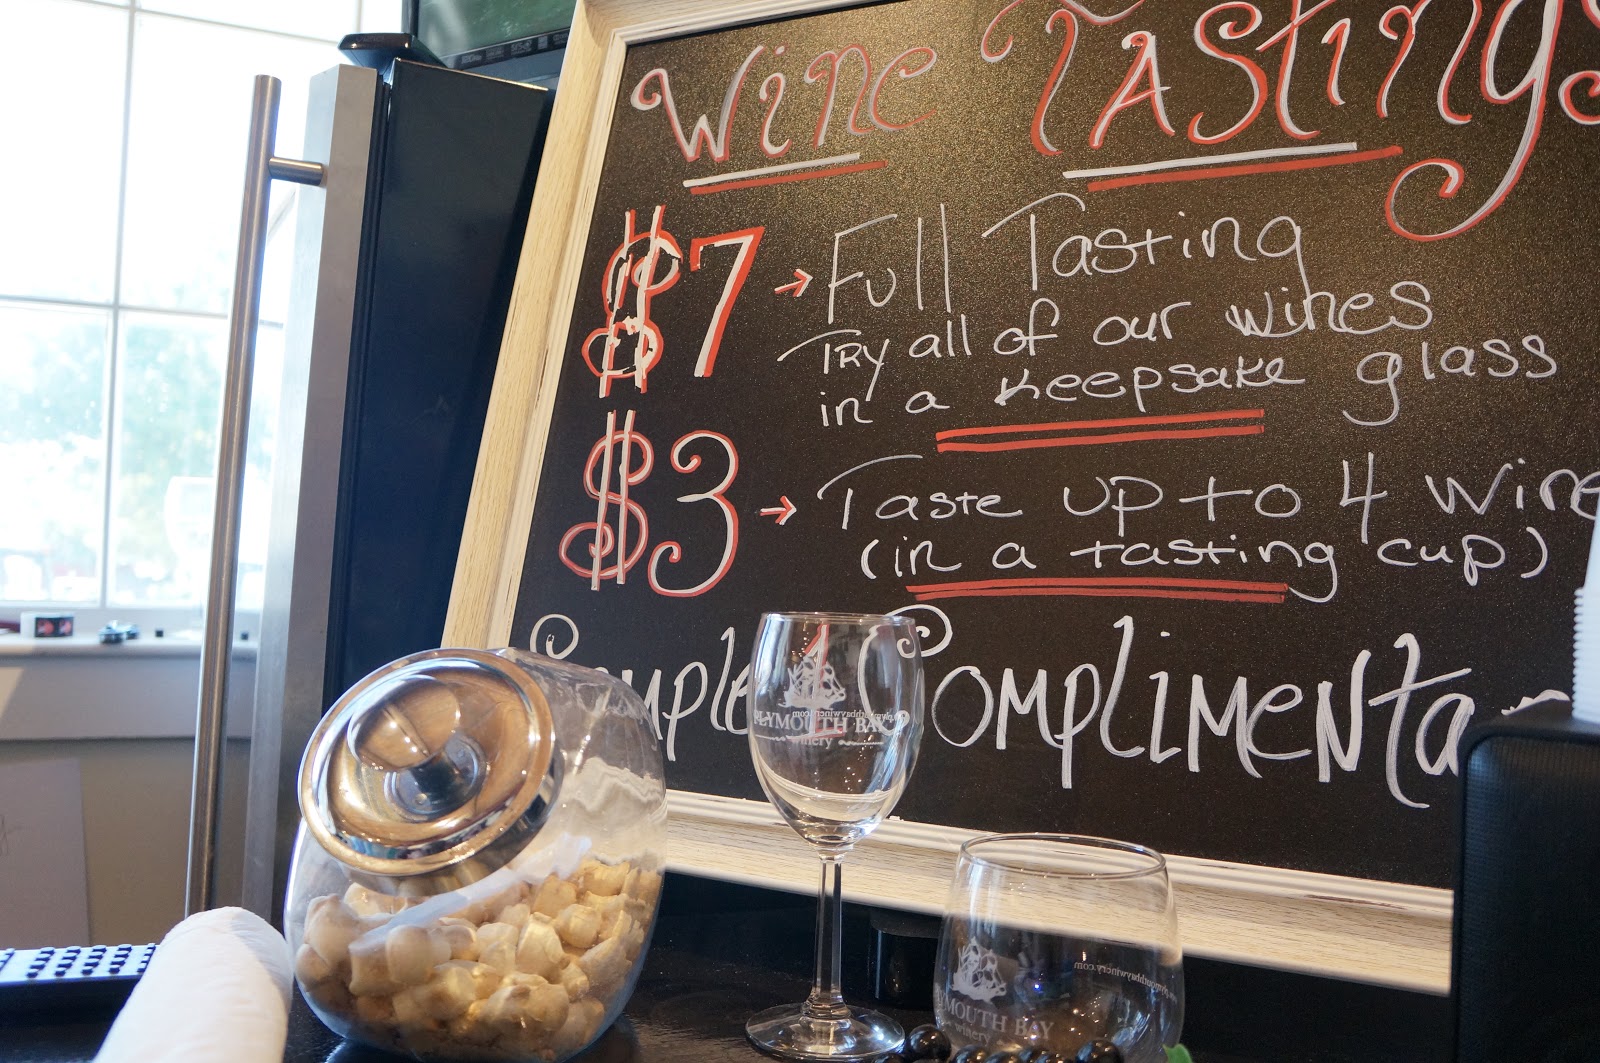 Wine Tastings
$7 → Full Tasting
Try all of our wines
in a keepsake glass
$3 → Taste up to 4 wine
(in a tasting cup)
Sample 1 Complimenta
PLYMOUTH BAY
winery
PLYMOUTH BAY
winery